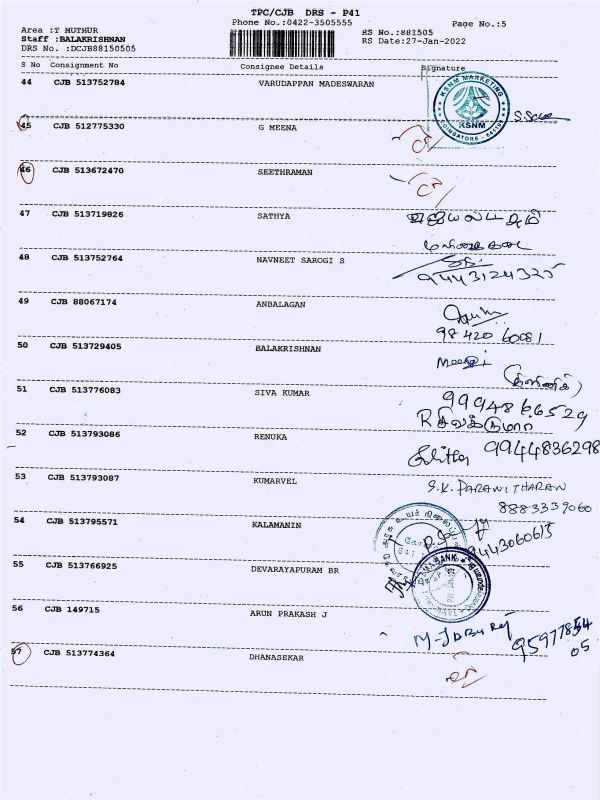 TPC/CJB DRS - P41
Phone No.:0422-3505555
Page No.:5
Area :T MUTHUR
RS No.:881505
Staff :BALAKRISHNAN
RS Date:27-Jan-2022
DRS No. :DCJB88150505
S No Consignment No Consignee Details Signature
44 CJB 513752784 VARUDAPPAN MADESWARAN
KSNM MARKETING
KSNM
COIMBATORE
45 CJB 512775330 G MEENA
46 CJB 513672470 SEETHRAMAN
47 CJB 513719826 SATHYA
48 CJB 513752764 NAVNEET SAROGI S
9443124325
49 CJB 88067174 ANBALAGAN
98420 60081
50 CJB 513729405 BALAKRISHNAN
51 CJB 513776083 SIVA KUMAR
9994866529
52 CJB 513793086 RENUKA
9944836298
53 CJB 513793087 KUMARVEL
S.K. PARANITHARAN
8883339060
54 CJB 513795571 KALAMANIN
9443060615
55 CJB 513766925 DEVARAYAPURAM BR
BANK
56 CJB 149715 ARUN PRAKASH J
57 CJB 513774364 DHANASEKAR